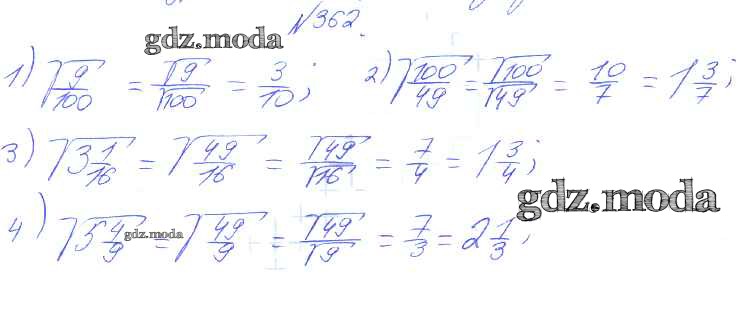 №362.
gdz.moda
1) √(9/100) = √9/√100 = 3/10; 2) √(100/49) = √100/√49 = 10/7 = 1 3/7;
3) √(3 1/16) = √(49/16) = √49/√16 = 7/4 = 1 3/4;
gdz.moda
4) √(5 4/9) = √(49/9) = √49/√9 = 7/3 = 2 1/3;
gdz.moda